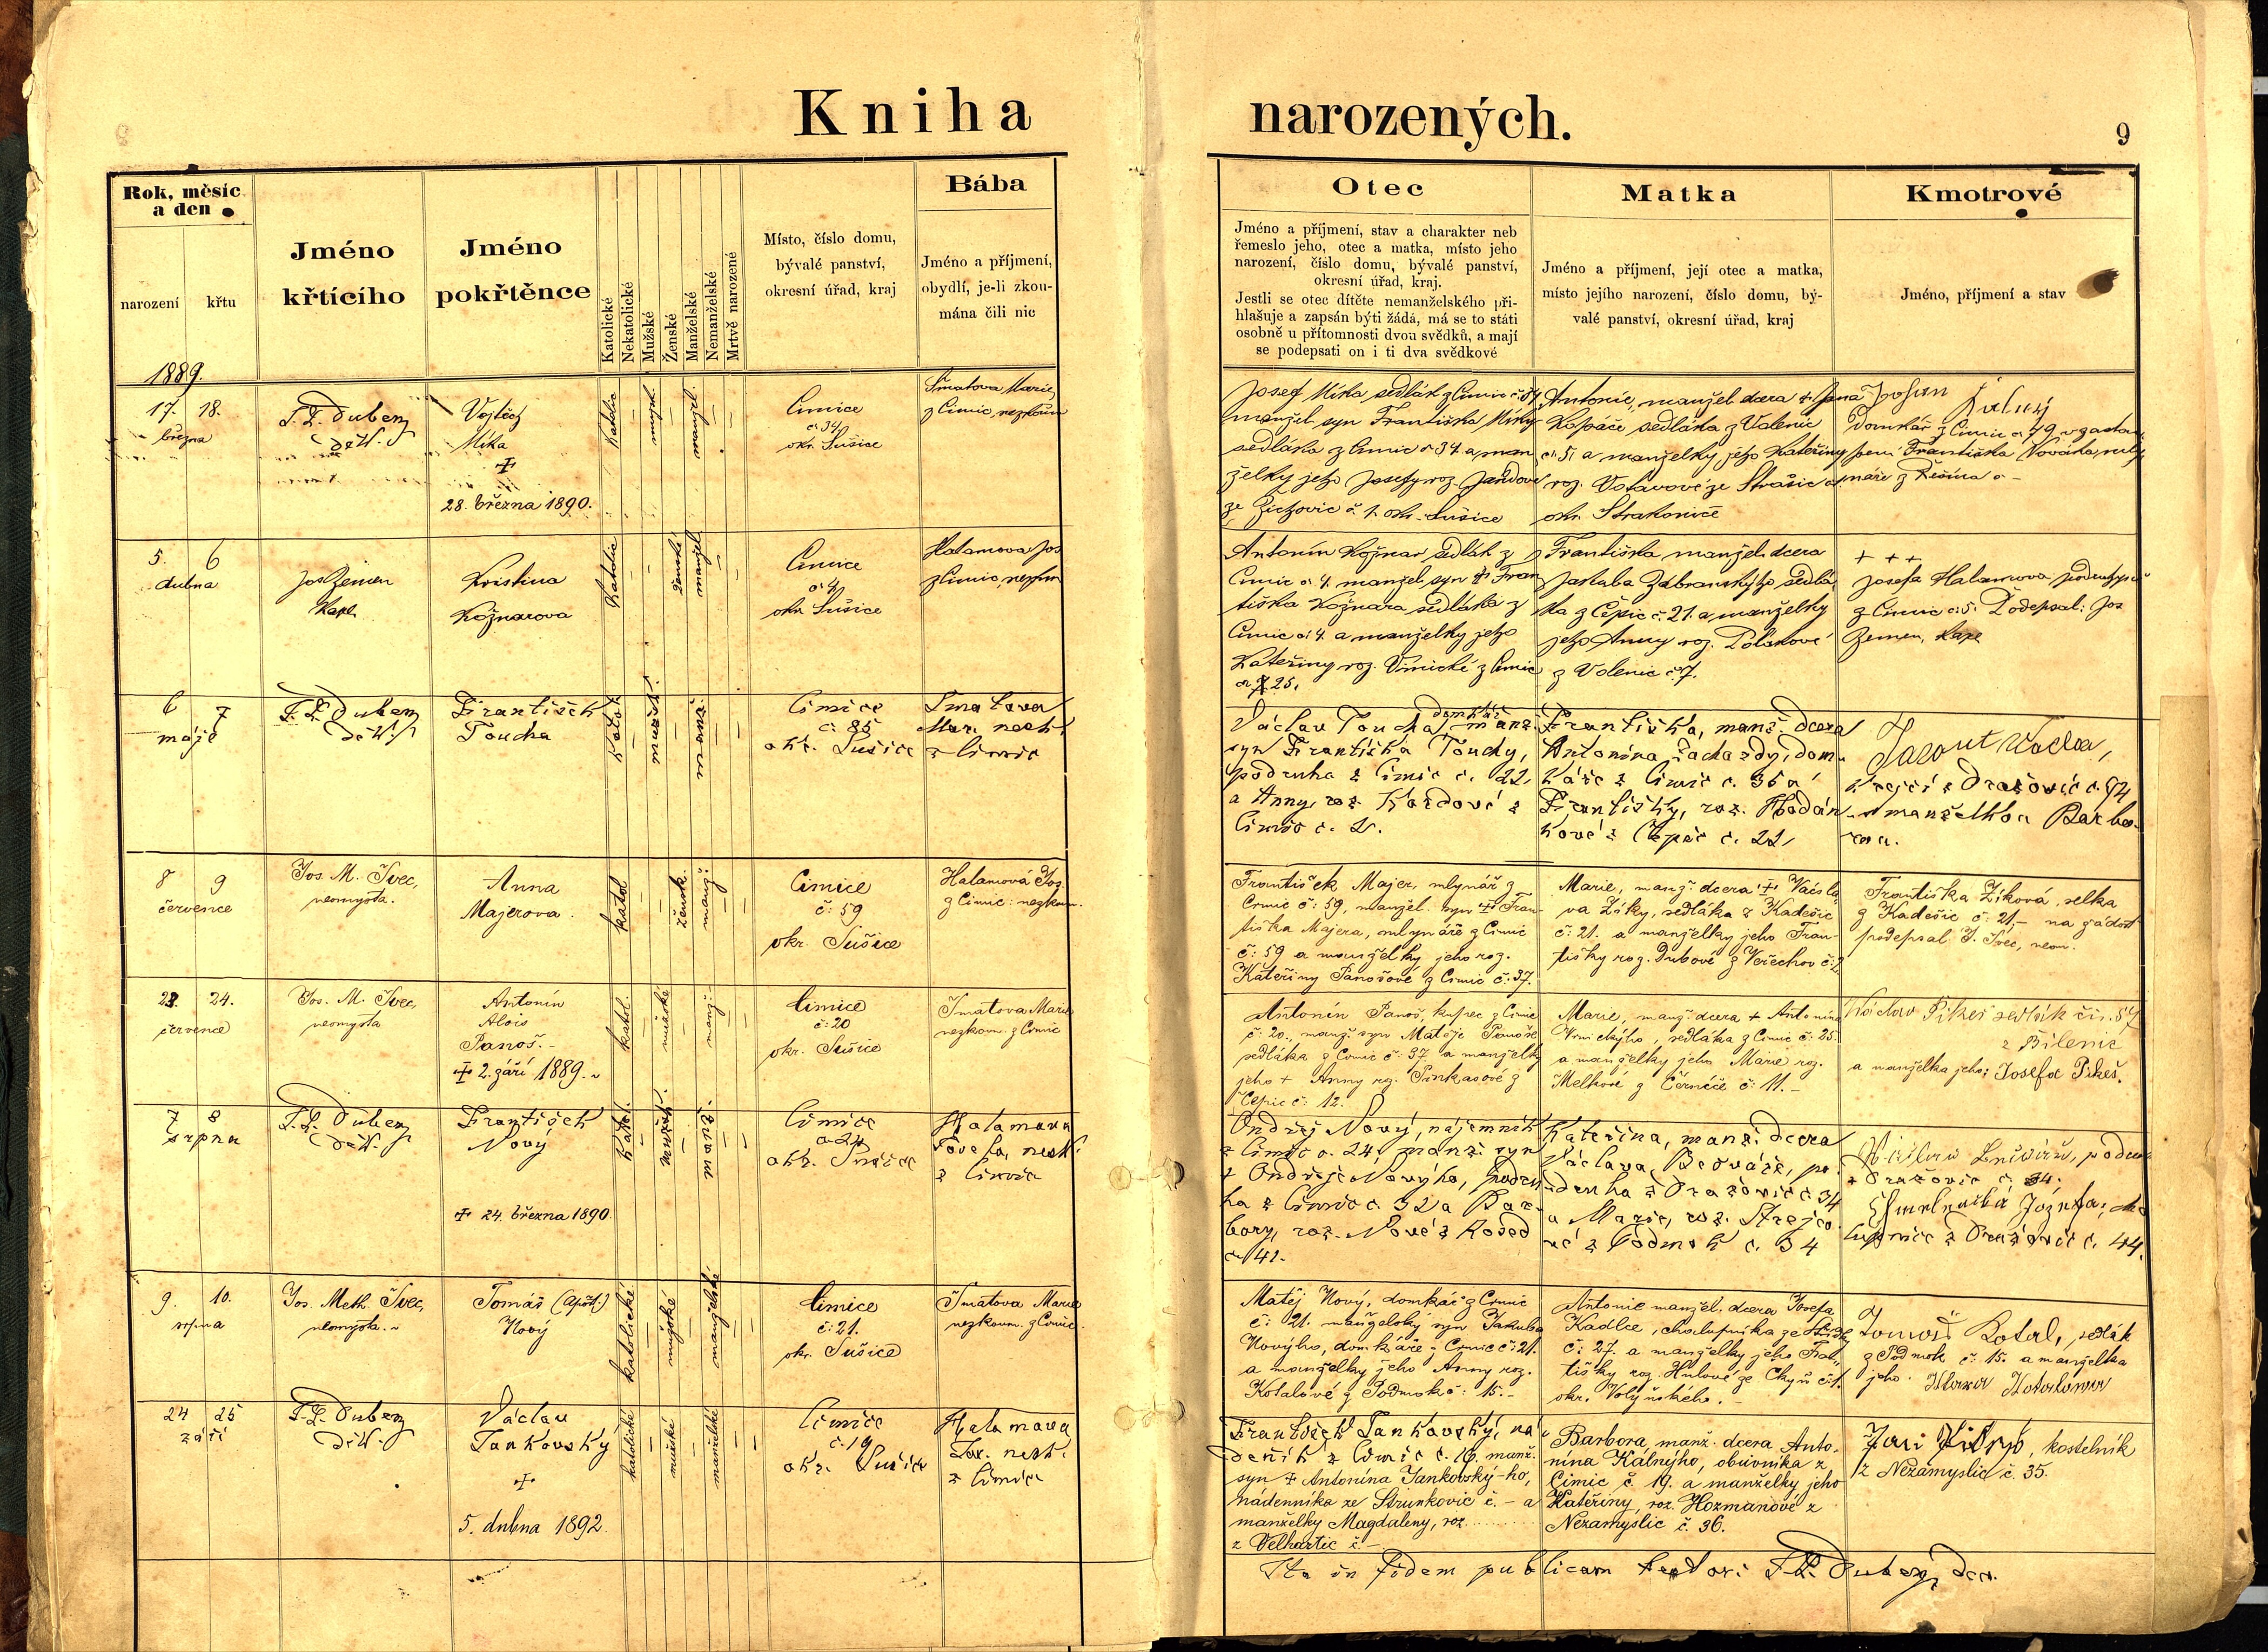 Kniha narozených.
9
Rok, měsíc
a den
narození
křtu
Jméno
křtícího
Jméno
pokřtěnce
Katolické
Nekatolické
Mužské
Ženské
Manželské
Nemanželské
Mrtvě narozené
Místo, číslo domu,
bývalé panství,
okresní úřad, kraj
Bába
Jméno a příjmení,
obydlí, je-li zkou-
mána čili nic
Otec
Jméno a příjmení, stav a charakter neb
řemeslo jeho, otec a matka, místo jeho
narození, číslo domu, bývalé panství,
okresní úřad, kraj.
Jestli se otec dítěte nemanželského při-
hlašuje a zapsán býti žádá, má se to státi
osobně u přítomnosti dvou svědků, a mají
se podepsati on i ti dva svědkové
Matka
Jméno a příjmení, její otec a matka,
místo jejího narození, číslo domu, bý-
valé panství, okresní úřad, kraj
Kmotrové
Jméno, příjmení a stav
1889.
17. 18.
března
Vojtěch
Míka
28. března 1890.
Cimice
okr. Sušice
Šmatova Marie
z Cimic, nezkoum
Josef Míka sedlák z Cimic
manžel. syn Františka Míky
sedláka z Cimic č 34 a man
želky jeho Josefy roz. Jandové
ze Žichovic č. 1. okr. Sušice
Antonie, manžel. dcera + Jana
Kopáče sedláka z Volenic
č. 5. a manželky jeho Kateřiny
roz. Votavové ze Strašic
okr. Strakonice
domkář z Cimic
Františka Nováka
5. 6
dubna
Jos Zeman
Kapl.
Kristina
Kožnarova
katolic
ženské
manžel
Cimice
č 4
okr. Sušice
Halamova Jos
z Cimic, nezkm
Antonín Kožnar sedlák z
Cimic č. 4. manžel. syn + Fran
tiška Kožnara sedláka z
Cimic č. 4. a manželky jeho
Kateřiny roz. Vrnické z Cimic
č 25.
Františka manžel. dcera
Jakuba Zabranskýho, sedlá
ka z Čepic č. 21. a manželky
jeho Anny roz. Polákové
z Volenic č. 7.
+ + +
Josefa Halamova
z Cimic č. 5. Podepsal: Jos
Zeman, kapl
6 7
máje
F. L. Dubený
děk.
František
Toucha
katol.
mužsk.
manž.
Cimice
č. 85
okr. Sušice
Šmatova
Mar. nezk.
z Cimic
domkář
Václav Toucha, manž.
syn Františka Touchy,
podruha z Cimic č. 22,
a Anny, roz. Kordové z
Cimic č. 2.
Františka, manž. dcera
Antonína Zachardy, dom-
káře z Cimic č. 35 a
Františky, roz.
kové z Čepic č. 22
krejčí z Dražovic č. 94
a manželka Barbo-
ra.
8 9
července
Jos. M. Švec,
neomysta.
Anna
Majerova.
katol
žensk.
manž.
Cimice
č: 59
okr. Sušice
Halamová Jos.
z Cimic: nezkoum.
František Majer, mlynář z
Cimic č: 59, manžel. syn + Fran-
tiška Majera, mlynáře z Cimic
č: 59 a manželky jeho roz.
Kateřiny Panošové z Cimic č: 37.
Marie, manž. dcera + Václa-
va Žíky, sedláka z Kadešic
č: 21. a manželky jeho Fran-
tišky roz. Dubové z Veřechov č: 2.
Františka Žíková, selka
z Kadešic č. 21,- na žádost
podepsal J. Švec, neom.
23. 24.
července
Jos. M. Švec,
neomysta
Antonín
Alois
Panoš.-
+ 2. září 1889.
katol.
mužské
manž.
Cimice
č: 20
okr. Sušice
Šmatova Marie
nezkoum. z Cimic
Antonín Panoš, kupec z Cimic
č: 20., manž. syn Matěje Panoše
sedláka z Cimic č: 37. a manželky
jeho + Anny roz. Pinkasové z
Čepic č: 12.
Marie, manž. dcera + Antonína
Vrnickýho, sedláka z Cimic č: 25.
a manželky jeho Marie roz.
Melkové z Černíče č: 11.-
Václav Pikeš sedlák čís. 57
z Bílenic
a manželka jeho: Josefa Pikeš.
7 8
srpna
F. L. Dubený
děk.
František
Nový
+ 24. března 1890.
katol.
mužsk.
manž.
Cimice
č. 24
okr. Sušice
Halamova
Josefa, nezk.
z Cimic
Ondřej Nový, nájemník
z Cimic č. 24, manž. syn
+ Ondřeje Novýho, podru-
ha z Cimic č. 32 a Bar-
bory, roz. Nové z Kosed
č. 41.
Kateřina, manž. dcera
Václava Beováře, po-
druha z Dražovic č 34
a Marie, roz. Strejco-
vé z Podmok č. 34
z Dražovic č. 34.
z Dražovic č. 44.
9. 10.
srpna
Jos. Meth. Švec,
neomysta.
Tomáš (Apošt.)
Nový
katolické
mužské
manželské
Cimice
č: 21.
okr. Sušice
Šmatova Marie
nezkoum. z Cimic
Matěj Nový, domkář z Cimic
č: 21. manželský syn Jakuba
Novýho, domkáře z Cimic č: 21.
a manželky jeho Anny roz.
Kotalové z Podmok č: 15.-
Antonie manžel. dcera Josefa
Kadlce, chalupníka ze
č: 27. a manželky jeho Fran-
tišky roz. Hulové ze Chyš č: 1.
okr. Volyňského.-
Tomáš Kotal, sedlák
z Podmok č: 15. a manželka
jeho
24 25
září
F. L. Dubený
děk.
Václav
Jankovský
+
5. dubna 1892.
katolické
mužské
manželské
Cimice
č. 19
okr. Sušice
Halamova
Jos. nezk.
z Cimic
František Jankovský, ná-
deník z Cimic č. 19. manž.
syn + Antonína Jankovský-ho,
nádenníka ze Strunkovic č. - a
manželky Magdaleny, roz. ........
z Velhartic č. -
Barbora, manž. dcera Anto-
nína Kálnýho, obuvníka z
Cimic č. 19. a manželky jeho
Kateřiny, roz. Hozmanové z
Nezamyslic č. 36.
kostelník
z Nezamyslic č. 35.
Ita in fidem publicam testor: F. L. Dubený, dec.